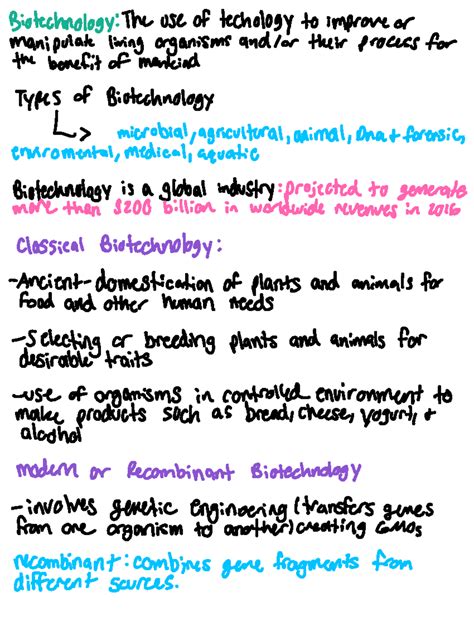 Biotechnology: The use of techology to improve or
manipulate living organisms and/or their process for
the benefit of mankind
Types of Biotechnology
microbial, agricultural, animal, Dna + forensic,
enviromental, medical, aquatic
Biotechnology is a global industry: projected to generate
more than $200 billion in worldwide revenues in 2016
Classical Biotechnology:
-Ancient-domestication of plants and animals for
food and other human needs
-Selecting or breeding plants and animals for
desirable traits
-use of organisms in controlled environment to
make products such as bread, cheese, yogurt, +
alcohol
modern or Recombinant Biotechnology
-involves genetic engineering (transfers genes
from one organism to another) creating GMOs
recombinant: combines gene fragments from
different sources.